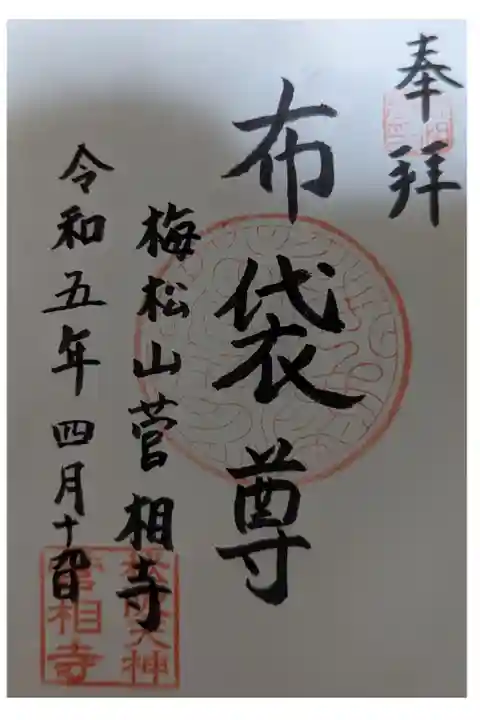 奉拝
布袋尊
梅松山菅相寺
令和五年四月十九日
菅相寺